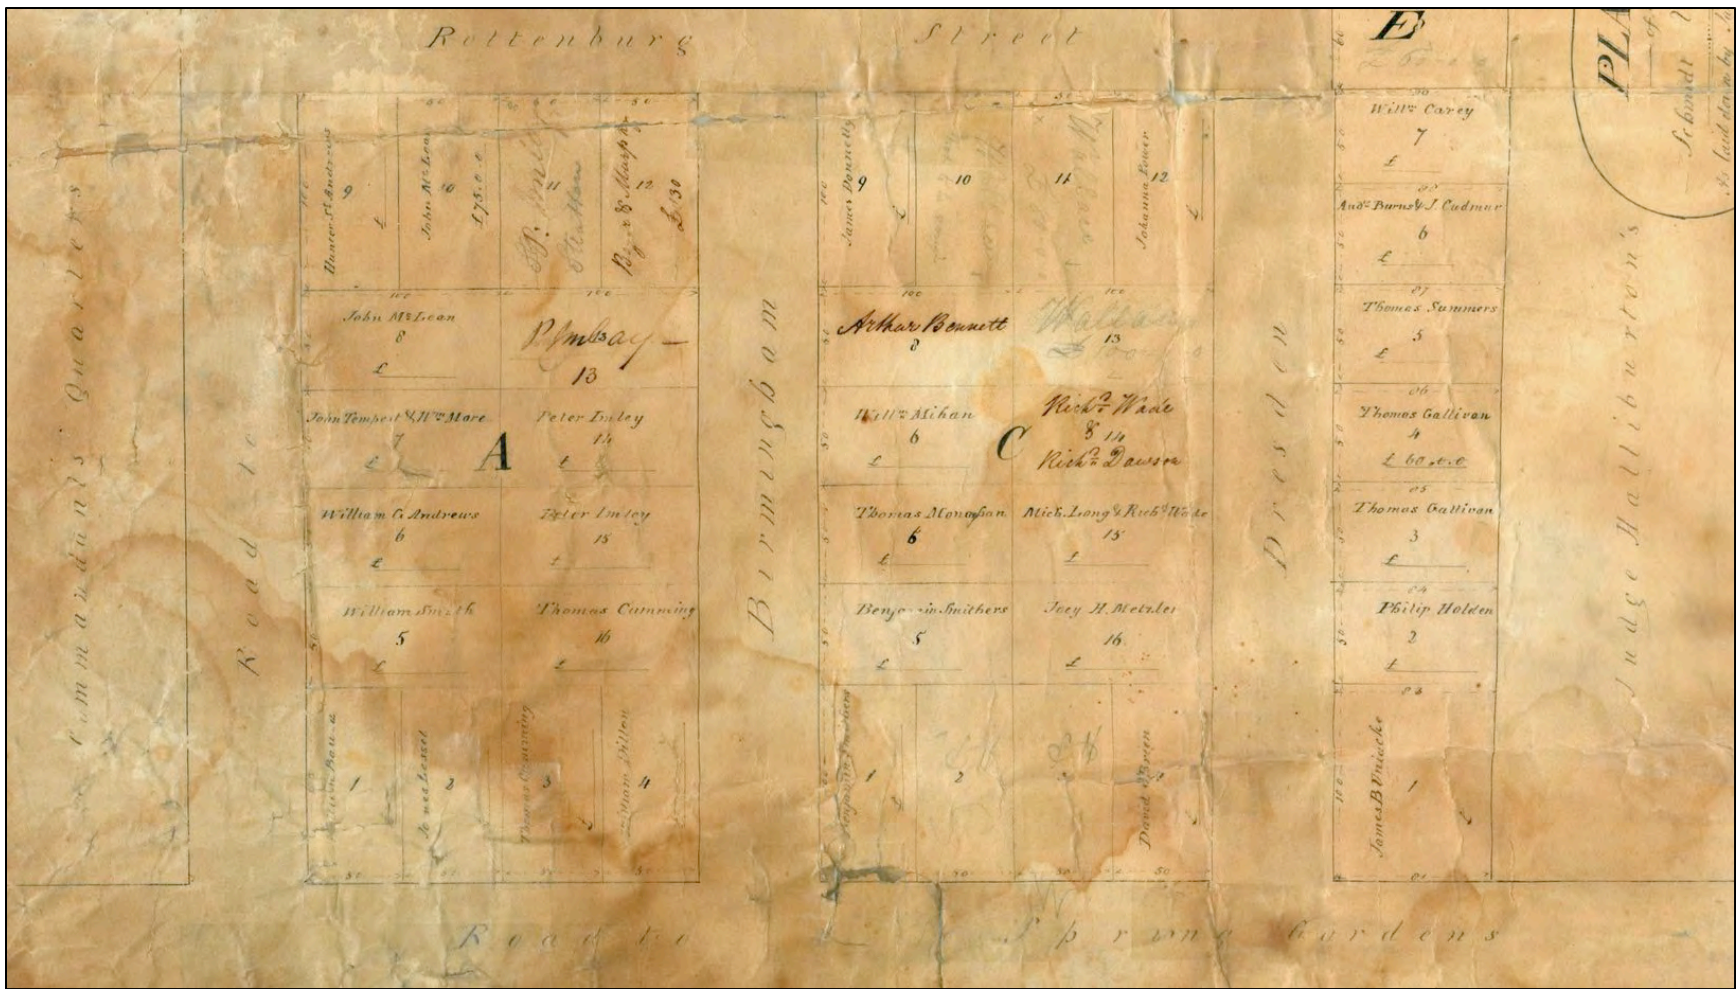 Rottenburg Street
E
PLA
of
Schmidt
Commandant's Quarters
Road to
Hunter St Andrews
9
£
John McLean
10
£75.0.0
11
12
£130
John McLean
8
£
13
John Tempest & Wm More
7
£
A
Peter Imley
14
£
William G Andrews
6
£
Peter Imley
15
£
William Smith
5
£
Thomas Cumming
16
£
1
2
Thomas Cumming
3
£
William Dillon
4
Birmingham
James Donnelly
9
£
10
11
Johanna Power
12
£
Arthur Bennett
8
13
Willm Mihan
6
£
C
Richd Wade
& 14
Richd Dawson
Thomas Monaghan
6
£
Mich. Long & Richd Wade
15
£
Benjamin Smithers
5
£
Joey H. Metzler
16
£
Benjamin Smithers
1
£
2
3
David O'Brien
4
£
Dresden
Willm Carey
7
£
Andw Burns & J. Cudmur
6
£
Thomas Summers
5
£
Thomas Gallivan
4
£60.0.0
Thomas Gallivan
3
£
Philip Holden
2
£
James B Uniacke
1
£
Judge Halliburton's
Road to Spring Gardens